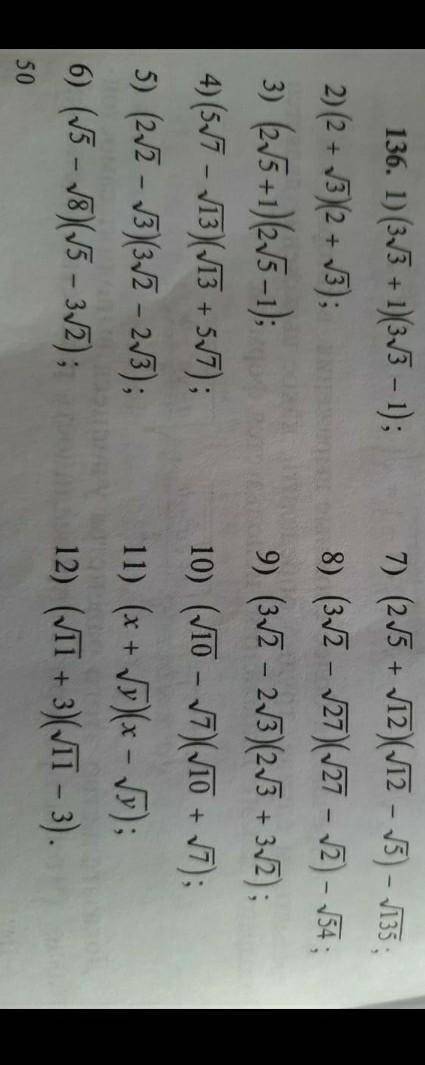 136. 1) (3√3 + 1)(3√3 − 1);
2) (2 + √3)(2 + √3);
3) (2√5 + 1)(2√5 − 1);
4) (5√7 − √13)(√13 + 5√7);
5) (2√2 − √3)(3√2 − 2√3);
6) (√5 − √8)(√5 − 3√2);
7) (2√5 + √12)(√12 − √5) − √135;
8) (3√2 − √27)(√27 − √2) − √54;
9) (3√2 − 2√3)(2√3 + 3√2);
10) (√10 − √7)(√10 + √7);
11) (x + √y)(x − √y);
12) (√11 + 3)(√11 − 3).
50